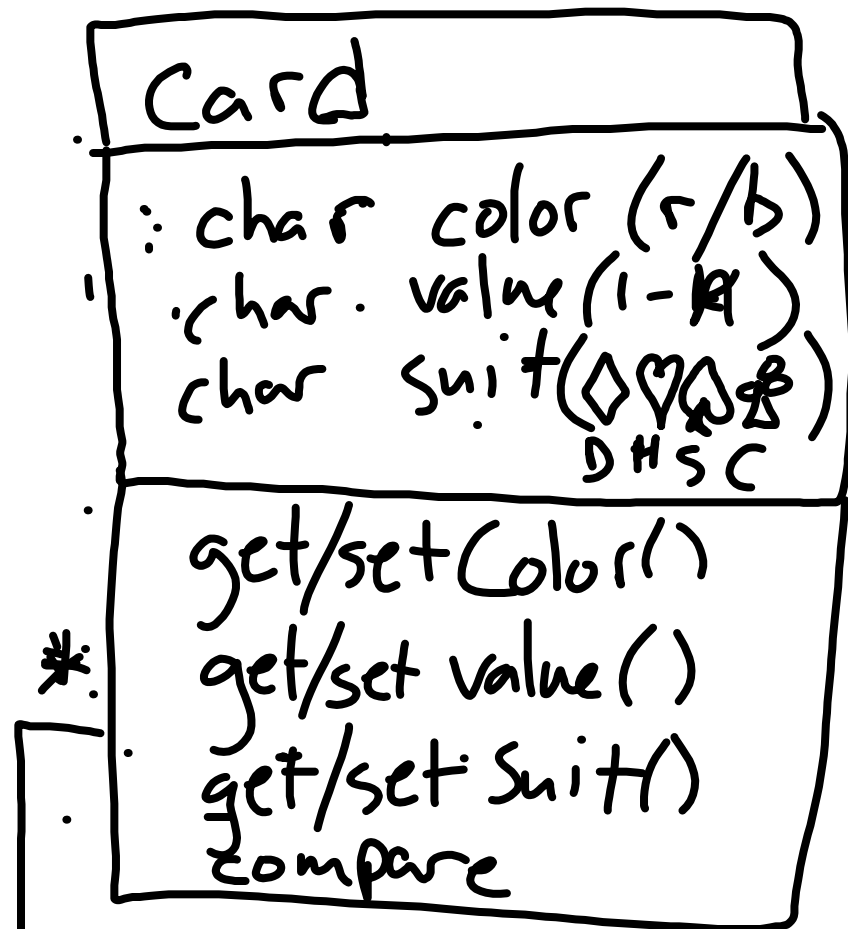 Card
char color (r/b)
char value (1-K)
char suit (♢♡♠♣)
D H S C
get/setColor()
get/set value()
get/set suit()
compare
*